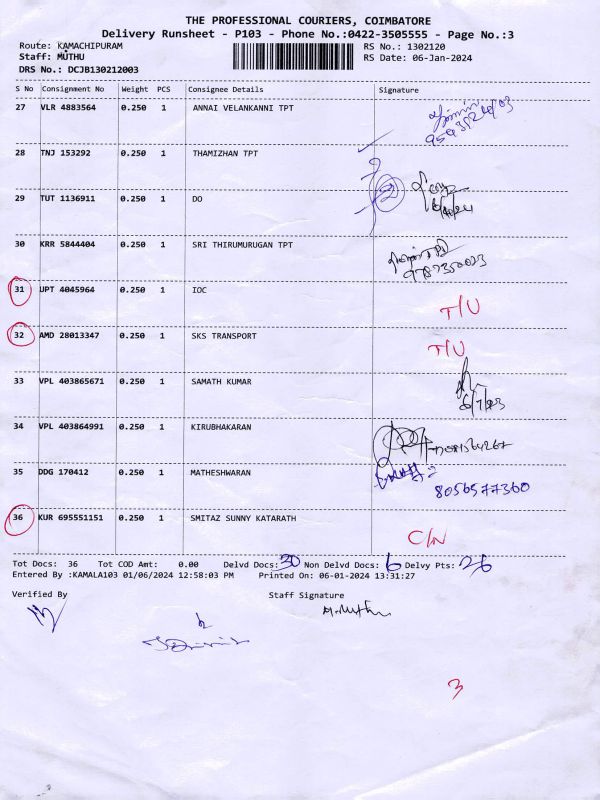 THE PROFESSIONAL COURIERS, COIMBATORE
Delivery Runsheet - P103 - Phone No.:0422-3505555 - Page No.:3
Route: KAMACHIPURAM RS No.: 1302120
Staff: MUTHU RS Date: 06-Jan-2024
DRS No.: DCJB130212003
S No Consignment No Weight PCS Consignee Details Signature
27 VLR 4883564 0.250 1 ANNAI VELANKANNI TPT
28 TNJ 153292 0.250 1 THAMIZHAN TPT
29 TUT 1136911 0.250 1 DO
30 KRR 5844404 0.250 1 SRI THIRUMURUGAN TPT
31 UPT 4045964 0.250 1 IOC T/U
32 AMD 28013347 0.250 1 SKS TRANSPORT T/U
33 VPL 403865671 0.250 1 SAMATH KUMAR
34 VPL 403864991 0.250 1 KIRUBHAKARAN
35 DDG 170412 0.250 1 MATHESHWARAN 8056577360
36 KUR 695551151 0.250 1 SMITAZ SUNNY KATARATH C/N
Tot Docs: 36 Tot COD Amt: 0.00 Delvd Docs: 30 Non Delvd Docs: 6 Delvy Pts: 26
Entered By :KAMALA103 01/06/2024 12:58:03 PM Printed On: 06-01-2024 13:31:27
Verified By Staff Signature
3